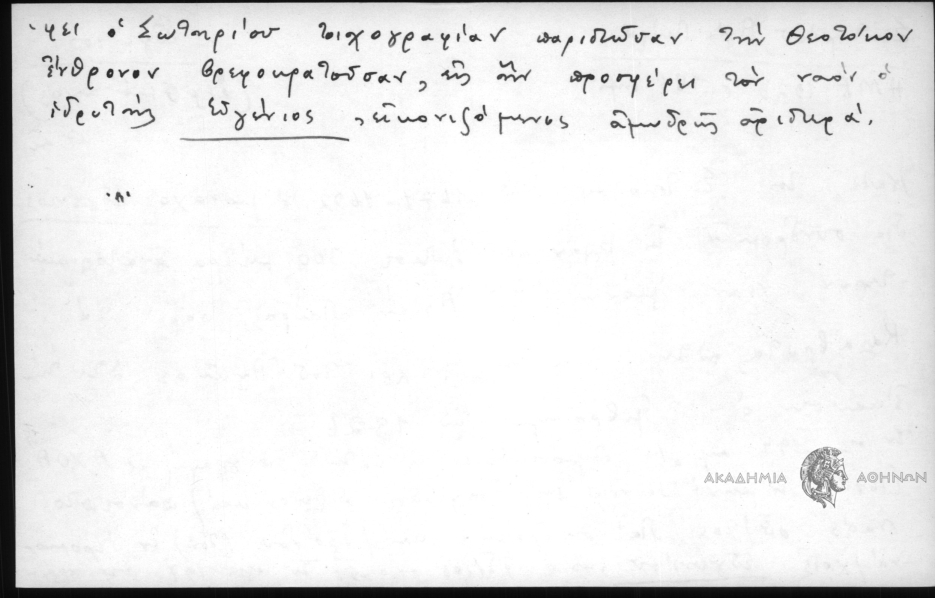 φει ὁ Σωτηρίου τοιχογραφίαν παριστῶσαν τὴν Θεοτόκον
ἔνθρονον βρεφοκρατοῦσαν, εἰς ἣν προσφέρει τὸν ναὸν ὁ
ἱδρυτὴς Εὐγένιος, εἰκονιζόμενος ἀμυδρῶς ἀριστερά.
ΑΚΑΔΗΜΙΑ ΑΘΗΝΩΝ